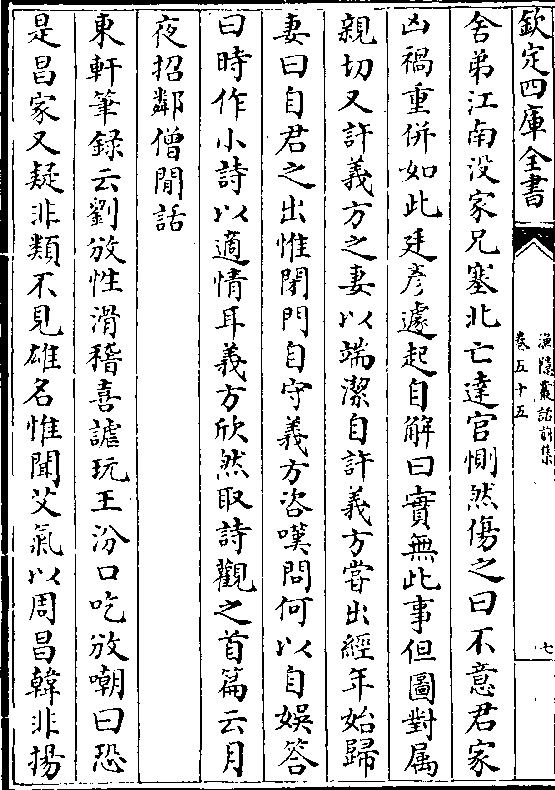 欽定四庫全書
漁隱叢話前集
卷五十五
七
舍弟江南没家兄塞北亡達官惻然傷之曰不意君家
凶禍重併如此廷彦遽起自解曰實無此事但圖對属
親切又許義方之妻以端潔自許義方嘗出經年始歸
妻曰自君之出惟閉門自守義方咨嘆問何以自娯答
曰時作小詩以適情耳義方欣然取詩觀之首篇云月
夜招鄰僧閒話
東軒筆録云劉攽性滑稽喜謔玩王汾口吃攽嘲曰恐
是昌家又疑非類不見雄名惟聞艾氣以周昌韓非揚